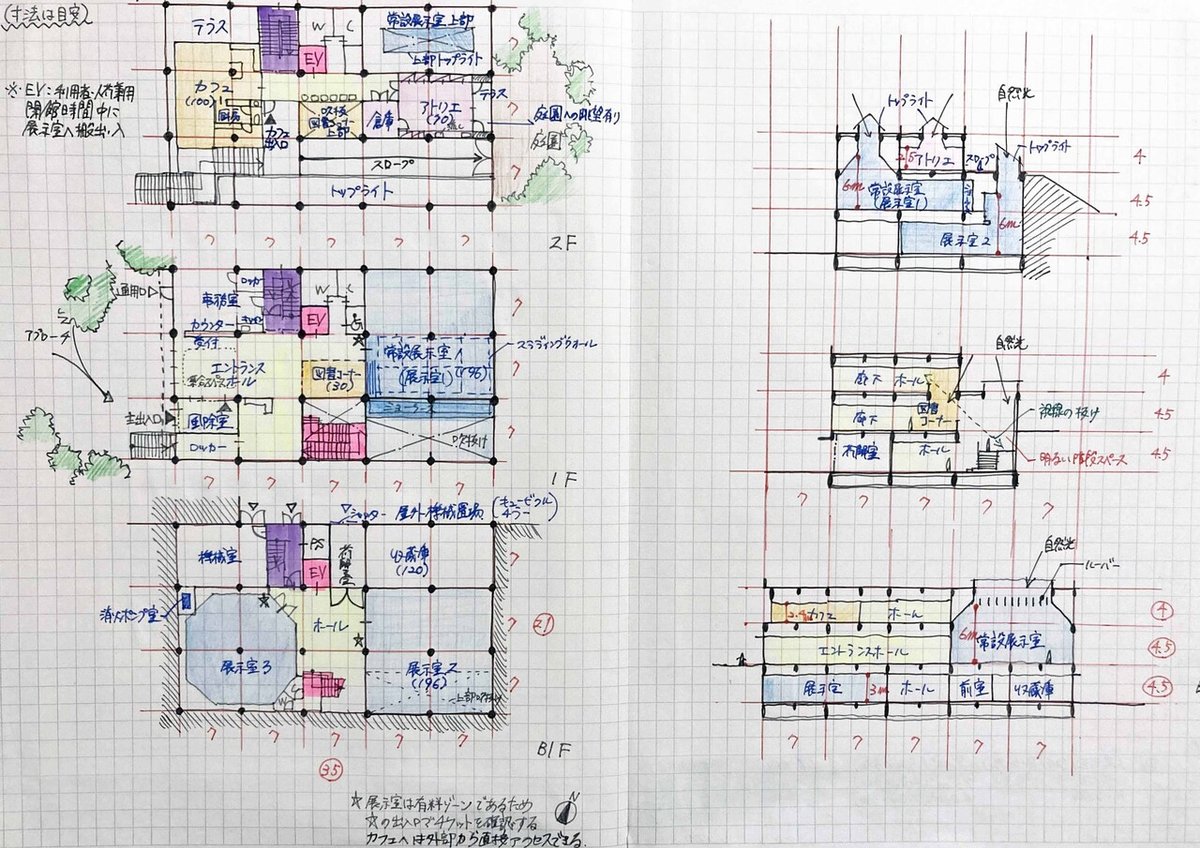 (寸法は目安)
※EV:利用者・人荷兼用
閉館時間中に
展示室へ搬出・入
テラス
W C
EV
常設展示室上部
上部トップライト
カフェ
(100)
厨房
カフェ
出入口
吹抜
図書コーナー
上部
倉庫
アトリエ
(70)
流し
テラス
庭園への眺望有り
庭園
スロープ
トップライト
7 7 7 7 7
7
7
7
2F
通用口
アプローチ
主出入口
事務室
ロッカー
カウンター
受付
エントランス
ホール
風除室
ロッカー
W C
EV
図書コーナー
(30)
常設展示室
(展示室1)
(196)
スライディングウォール
吹抜け
7 7 7 7 7
7
7
7
1F
シャッター
屋外機械置場
(キュービクル
機械室
PS
EV
荷解室
収蔵庫
(120)
消火ポンプ室
ホール
展示室3
展示室2
(196)
上部吹抜け
21
7
7
7
7 7 7 7 7
35
B1F
☆展示室は有料ゾーンであるため
☆の出入口でチケットを確認する
カフェへは外部から直接アクセスできる.
N
トップライト
自然光
トップライト
アトリエ
スロープ
常設展示室
(展示室1)
6m
展示室2
6m
4
4.5
4.5
自然光
廊下 ホール
廊下
図書
コーナー
ホール
視線の抜け
明るい階段スペース
4
4.5
4.5
7 7 7 7
自然光
ルーバー
カフェ
ホール
エントランスホール
6m
常設展示室
展示室
3m
ホール
前室
収蔵庫
4
4.5
4.5
7 7 7 7 7